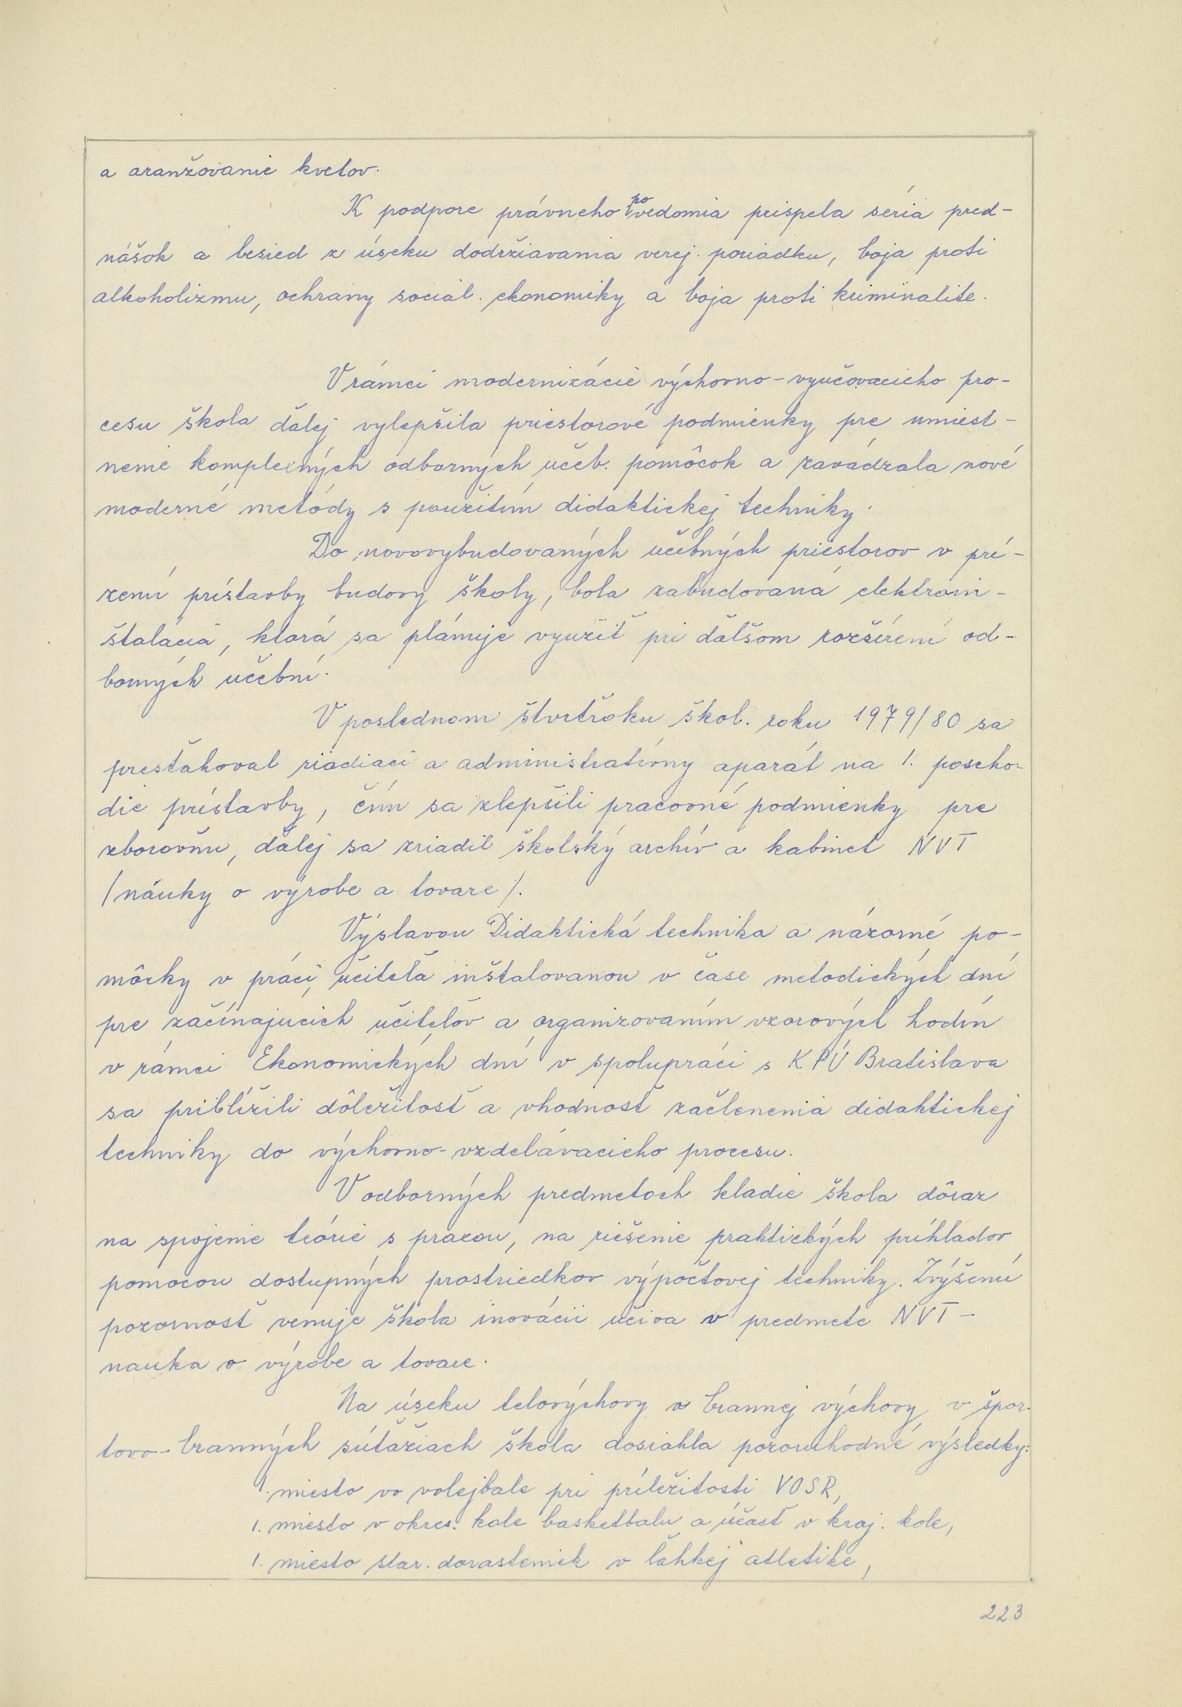 a aranžovanie kvetov.
K podpore právneho povedomia prispela séria pred-
nášok a besied z úseku dodržiavania verej. poriadku, boja proti
alkoholizmu, ochrany sociál. ekonomiky a boja proti kriminalite.
V rámci modernizácie výchovno-vyučovacieho pro-
cesu škola ďalej vylepšila priestorové podmienky pre umiest-
nenie komplexných odborných učeb. pomôcok a zavádzala nové
moderné metódy s použitím didaktickej techniky.
Do novovybudovaných učebných priestorov v prí-
zemí prístavby budovy školy, bola zabudovaná elektroin-
štalácia, ktorá sa plánuje využiť pri ďalšom rozšírení od-
borných učební.
V poslednom štvrťroku škol. roku 1979/80 sa
presťahoval riadiaci a administratívny aparát na 1. poscho-
die prístavby, čím sa zlepšili pracovné podmienky pre
zborovňu, ďalej sa zriadil školský archív a kabinet NVT
/náuky o výrobe a tovare/.
Výstavou Didaktická technika a názorné po-
môcky v práci učiteľa inštalovanou v čase metodických dní
pre začínajúcich učiteľov a organizovaním vzorových hodín
v rámci Ekonomických dní v spolupráci s KPÚ Bratislava
sa priblížili dôležitosť a vhodnosť začlenenia didaktickej
techniky do výchovno-vzdelávacieho procesu.
V odborných predmetoch kladie škola dôraz
na spojenie teórie s praxou, na riešenie praktických príkladov
pomocou dostupných prostriedkov výpočtovej techniky. Zvýšenú
pozornosť venuje škola inovácii učiva v predmete NVT -
nauka o výrobe a tovare.
Na úseku telovýchovy a brannej výchovy v špor-
tovo-branných súťažiach škola dosiahla pozoruhodné výsledky:
1. miesto vo volejbale pri príležitosti VOSR,
1. miesto v okres. kole basketbalu a účasť v kraj. kole,
1. miesto star. dorasteniek v ľahkej atletike,
223